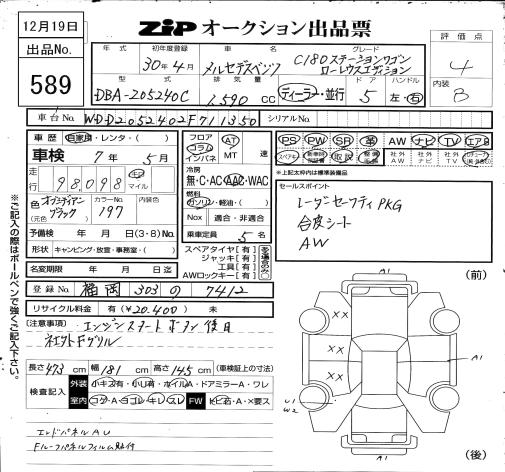 12月19日
ZIP オークション出品票
出品No.
589
評価点
4
内装
B
年式 初年度登録 車名 グレード
30年4月 メルセデスベンツ C180ステーションワゴン
ローレウスエディション
型式 排気量 ドア ハンドル
DBA-205240C 1,590 CC ディーラー・並行 5 左・右
車台No. WDD2052402F711350 シリアルNo.
車歴 自家用・レンタ・( )
車検 7年 5月
走行 98,098 キロ マイル
色 (元色) オブシディアンブラック カラーNo. 197
予備検 年 月 日(3・8)No.
形状 キャンピング・放宣・事務室・( )
名変期限 年 月 日迄
フロア コラム インパネ AT MT 速
冷房
無・C・AC・AAC・WAC
燃料
ガソリン・軽油・( )
Nox 適合・非適合
乗車定員 5 名
スペアタイヤ[有]
ジャッキ[有]
工具[有]
AWロックキー[有]
有る場合のみ○
PS PW SR 革 AW ナビ TV エアB
スペアキー 取説 社外AW 社外ナビ 社外TV
※上記太枠内は標準装備品
セールスポイント
レーダーセーフティPKG
合皮シート
AW
登録No. 福岡 303 の 7412
リサイクル料金 有(¥20.400) 未
(注意事項) エンジンスタートボタン後日
ネエクトFグリル
長さ 473 cm 幅 181 cm 高さ 145 cm (車検証上の寸法)
検査記入 外装 小キズ有・小凹有・ホイルA・ドアミラーA・ワレ
室内 コゲ・A・ヨゴレ・キレ・スレ FW トビ石・A・X要ス
エンドパネルAU
Fルーフパネルフィルム貼付
※ご記入の際はボールペンで強くご記入下さい。
(前)
XX
XX
XX
A1
A1
U1
W2
(後)